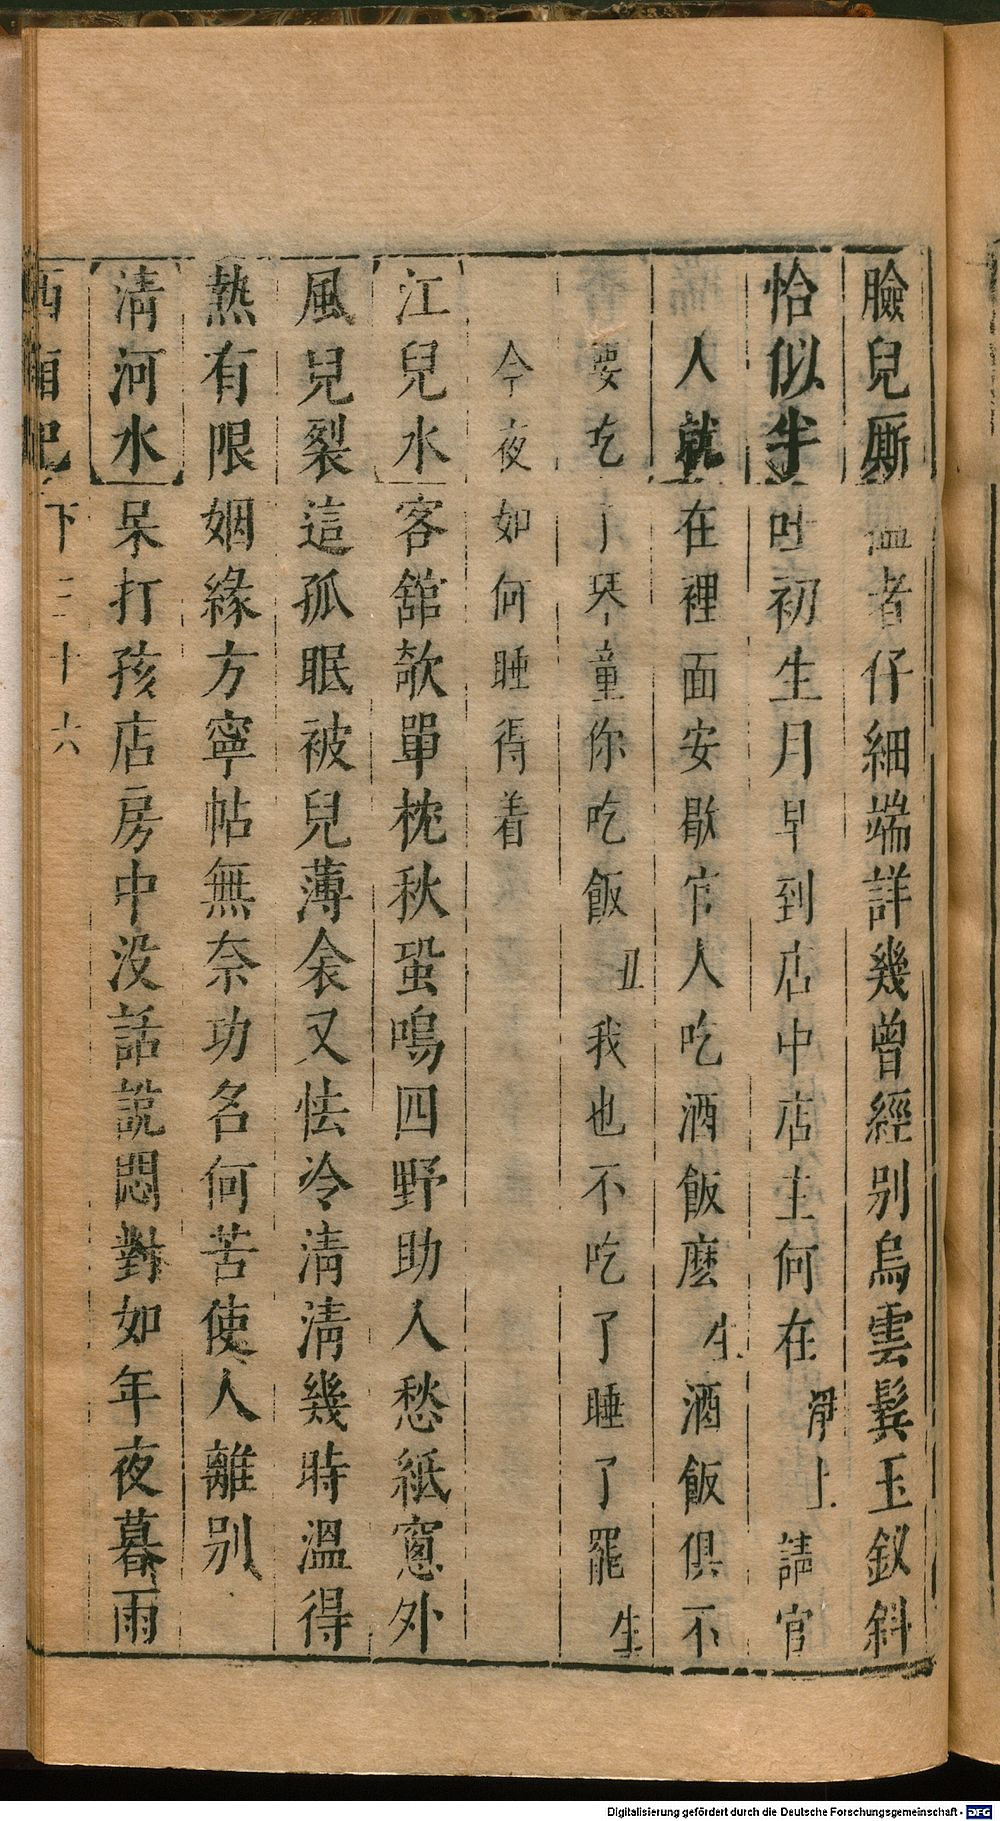 臉兒厮揾者仔細端詳幾曾經别烏雲鬂玉釵斜
恰似半吐初生月早到店中店主何在淨上請官
人就在裡面安歇官人吃酒飯麽生酒飯俱不
要吃了琴童你吃飯丑我也不吃了睡了罷生
今夜如何睡得着
江兒水客舘欹單枕秋蛩鳴四野助人愁紙窓外
風兒裂這孤眠被兒薄衾又怯冷清清幾時温得
熱有限姻緣方寧帖無奈功名何苦使人離别
清河水呆打孩店房中没話説悶對如年夜暮雨
西廂記 下 三十六
Digitalisierung gefördert durch die Deutsche Forschungsgemeinschaft - DFG